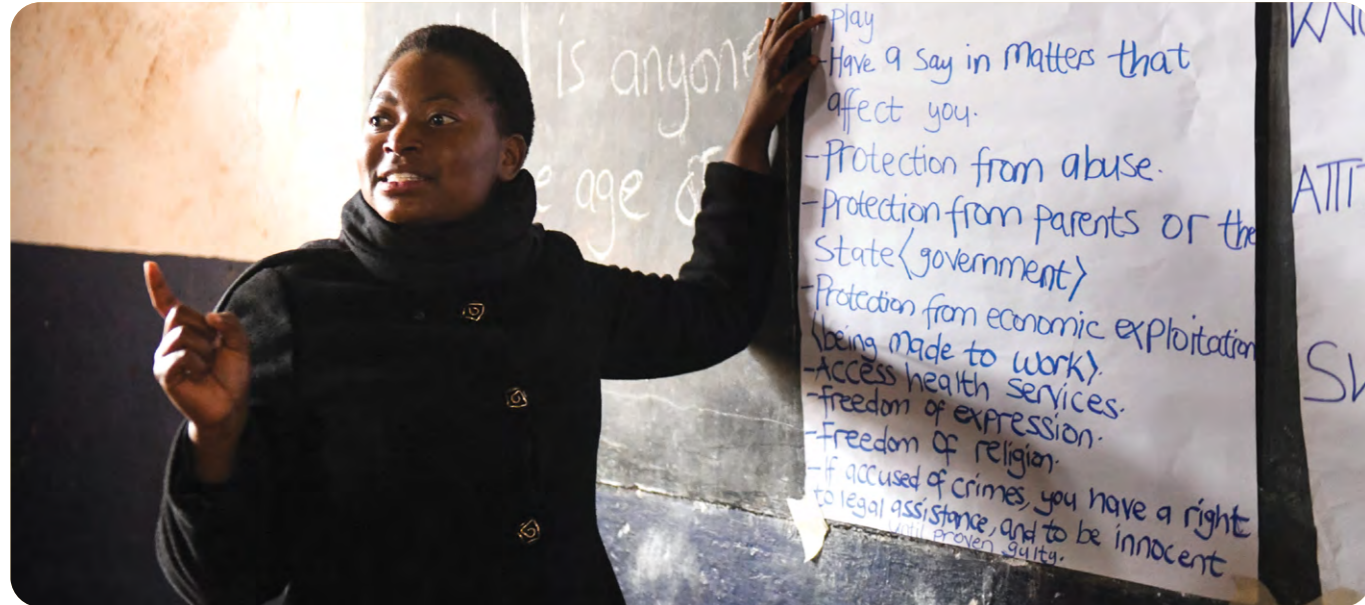 is anyone
age of
Play
-Have a say in matters that
affect you.
-Protection from abuse.
-Protection from parents or the
State (government)
-Protection from economic exploitation
(being made to work).
-Access health services.
-freedom of expression.
-Freedom of religion.
-If accused of crimes, you have a right
to legal assistance, and to be innocent
until proven guilty.